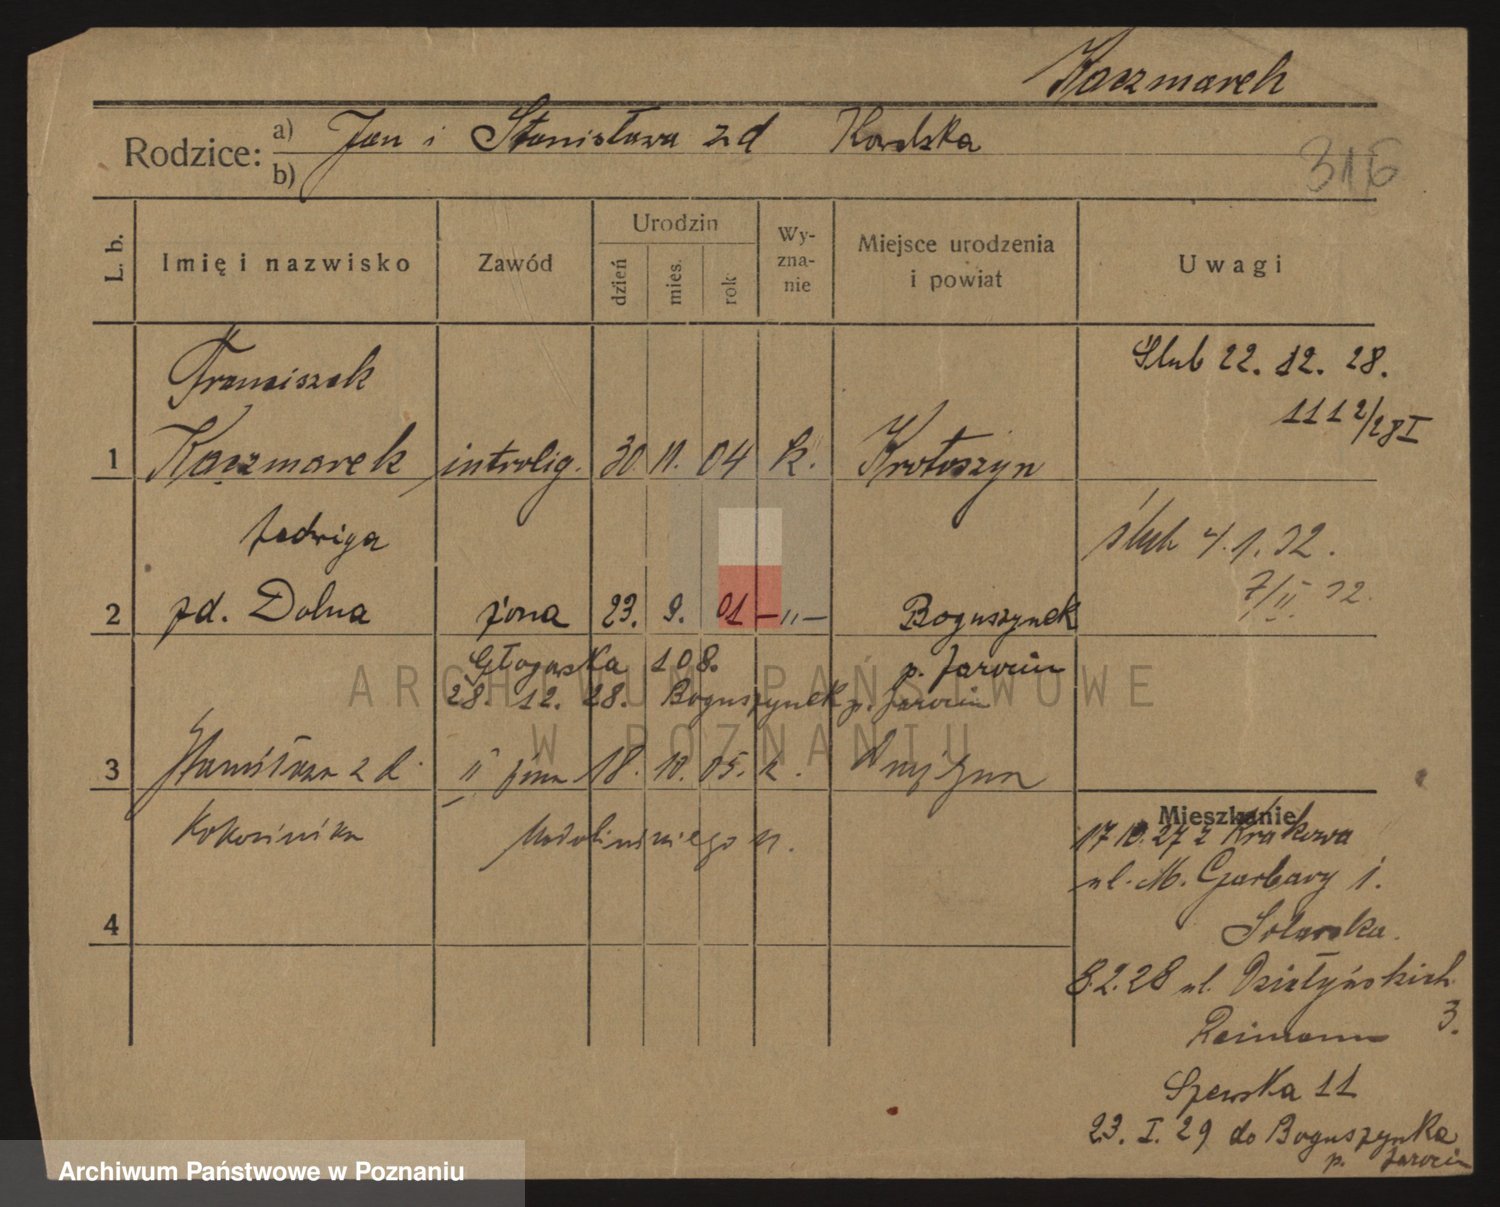 Kaczmarek
Rodzice: a) Jan i Stanisława zd
b)
316
L. b.
Imię i nazwisko
Zawód
Urodzin
dzień
mies.
rok
Wy-
zna-
nie
Miejsce urodzenia
i powiat
Uwagi
Franciszek
Ślub 22. 12. 28.
1112/28 I
1 Kaczmarek introlig. 30 11. 04 k. Krotoszyn
Jadwiga
ślub 4. 1. 32.
7/II. 32.
2 zd. Dolna żona 23. 9. 01 —„— Boguszynek
Głogowska 108. p. Jarocin
28. 12. 28. Boguszynek p. Jarocin
3 Stanisława z d. II żona 18. 10. 05. k.
11.
4
Mieszkanie
17 10. 27 z Krakowa
ul. M. Garbary 1.
Solarska.
8.2.28 ul. Działyńskich
3.
Reimann
Szewska 11
23. I. 29 do Boguszynka
p. Jarocin
ARCHIWUM PAŃSTWOWE
W POZNANIU
Archiwum Państwowe w Poznaniu